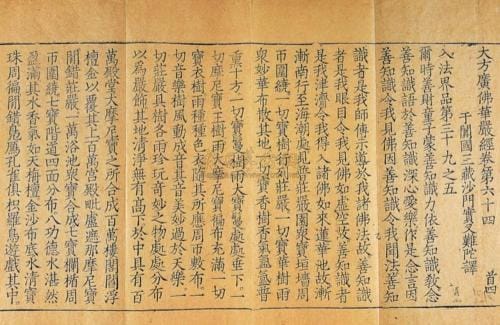 大方廣佛華嚴經卷第六十四 首四
于闐國三藏沙門實叉難陀譯
入法界品第三十九之五
爾時善財童子蒙善知識力依善知識教念
善知識語於善知識深心愛樂作是念言因
善知識令我見佛因善知識令我聞法善知
識者是我師傅示導於我諸佛法故善知識
者是我眼目令我見佛如虛空故善知識者
是我津濟令我得入諸佛如來蓮華池故漸
漸南行至海潮處見普莊嚴園眾寶垣牆周
帀圍繞一切寶樹行列莊嚴一切寶華樹雨
眾妙華布散其地一切寶香樹香氣氛氳普
熏十方一切寶鬘樹雨大寶鬘處處垂下一
切摩尼寶王樹雨大摩尼寶徧布充滿一切
寶衣樹雨種種色衣隨其所應周帀敷布一
切音樂樹風動成音其音美妙過於天樂一
切莊嚴具樹各雨珍玩奇妙之物處處分布
以為嚴飾其地清淨無有高下於中具有百
萬殿堂大摩尼寶之所合成百萬樓閣閻浮
檀金以覆其上百萬宮殿毗盧遮那摩尼寶
間錯莊嚴一萬浴池眾寶合成七寶欄楯周
帀圍繞七寶階道四面分布八功德水湛然
盈滿其水香氣如天栴檀金沙布底水清寶
珠周徧間錯鳧鴈孔雀俱枳羅鳥遊戲其中